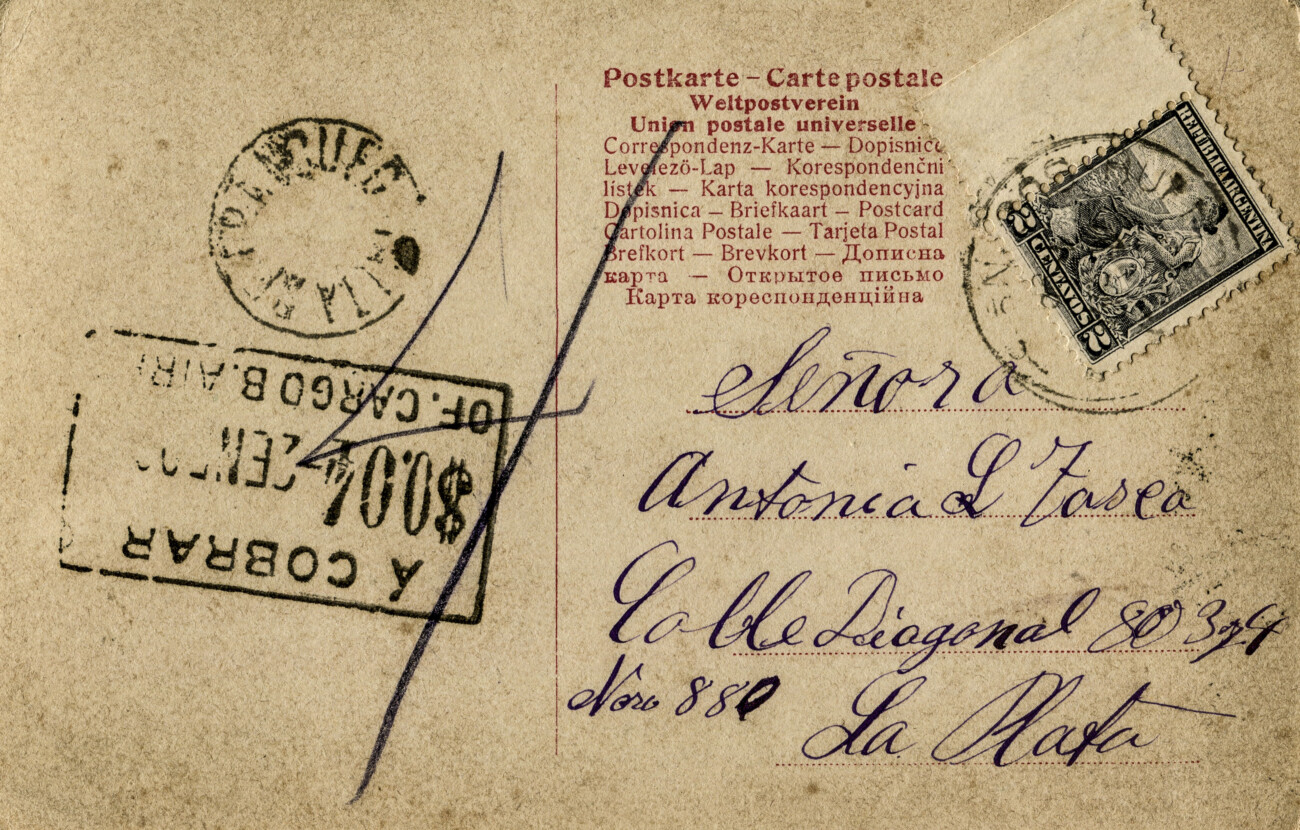 Postkarte – Carte postale
Weltpostverein
Union postale universelle
Correspondenz-Karte — Dopisnice
Levelező-Lap — Korespondenční
lístek — Karta korespondencyjna
Dopisnica — Briefkaart — Postcard
Cartolina Postale — Tarjeta Postal
Brefkort — Brevkort — Дописна
карта — Открытое письмо
Карта кореспонденційна
REPUBLICA ARGENTINA
2 CENTAVOS 2
Señora
Antonia L Tasca
Calle Diagonal 80 3 y 4
Nro 880
La Plata
A COBRAR
$0.04
OF. CARGO B. AIR